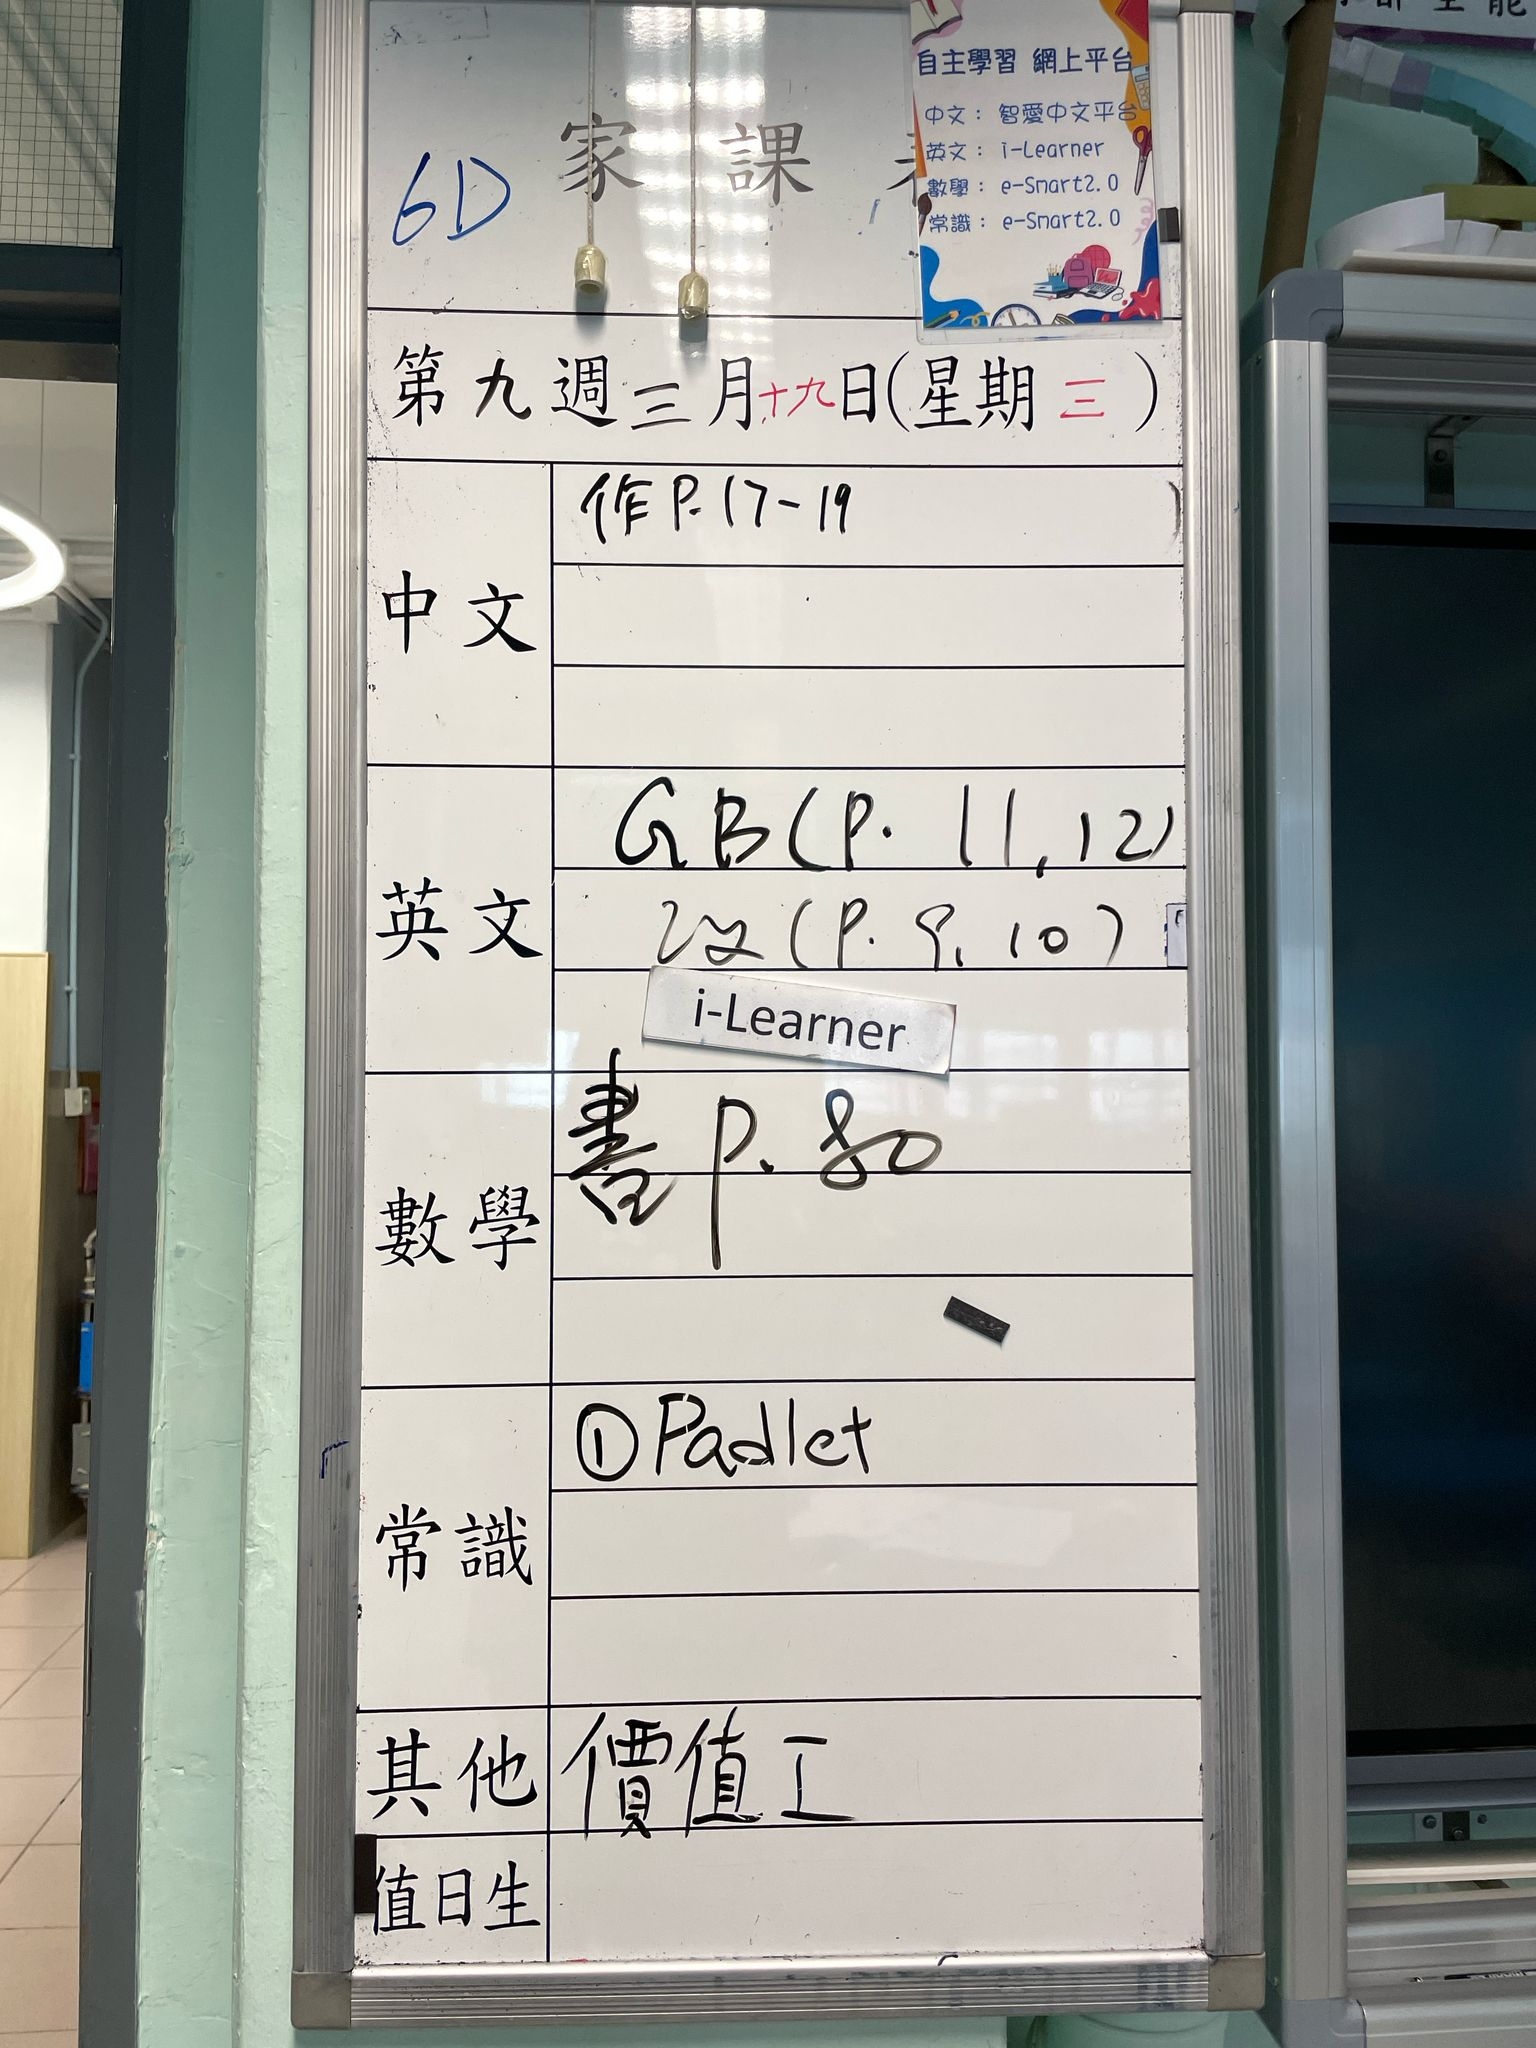 自主學習 網上平台
中文： 智愛中文平台
英文： i-Learner
數學： e-Smart2.0
常識： e-Smart2.0
6D
家 課
第九週三月十九日(星期三)
中文
作P.17-19
英文
GB(P. 11,12)
改(P.9,10)
i-Learner
數學
書P.80
常識
①Padlet
其他
價值工
值日生